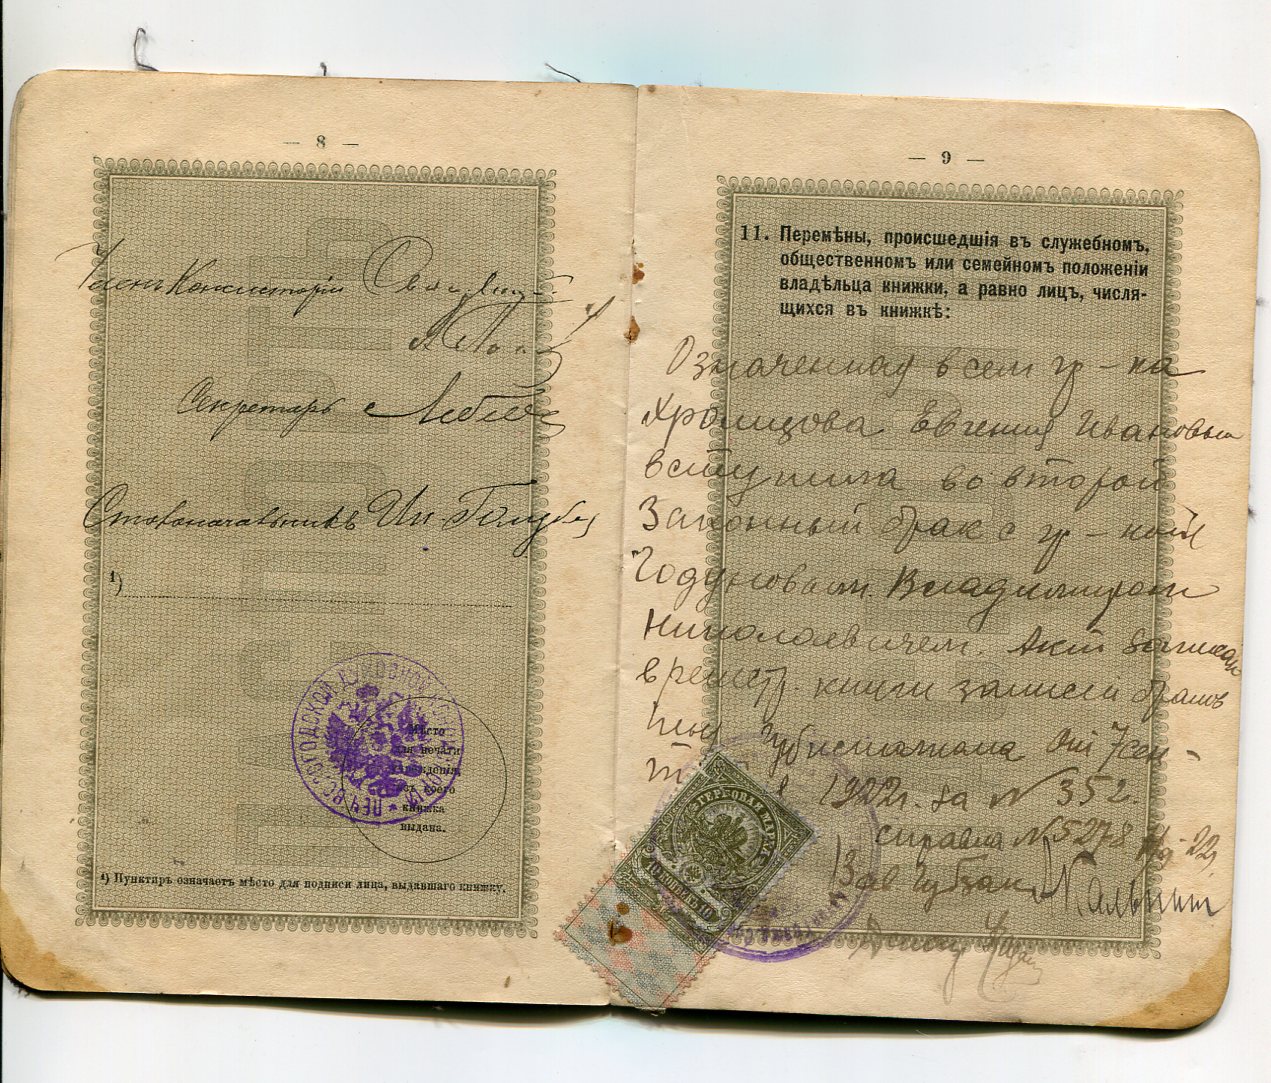 — 8 —
Членъ Консисторіи Свящ
Секретарь Лебедев
Столоначальникъ Ив. Голубев
¹)
ВОЛОГОДСКОЙ ДУХОВНОЙ КОНСИСТОРІИ
Мѣсто
для печати
учрежденія,
изъ коего
книжка
выдана.
¹) Пунктиръ означаетъ мѣсто для подписи лица, выдавшаго книжку.
— 9 —
11. Перемѣны, происшедшія въ служебномъ,
общественномъ или семейномъ положеніи
владѣльца книжки, а равно лицъ, числя-
щихся въ книжкѣ:
Означенная в сем гр-ка
Евгения Ивановна
вступила во второй
Законный брак с гр-ном
Годуновым Владимиром
Николаевичем. Акт записан
в регистр. книги записи браков
при Губисполкома от 7 сен-
1922 г. за № 352.
справка № 5278 22
Зав Губзаг
ГЕРБОВАЯ МАРКА
10 КОП.